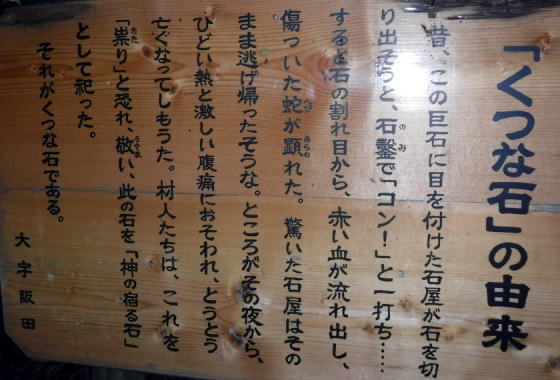 「くつな石」の由来
昔、この巨石に目を付けた石屋が石を切
り出そうと、石鑿で「コン！」と一打ち……
すると石の割れ目から、赤い血が流れ出し、
傷ついた蛇が顕れた。驚いた石屋はその
まま逃げ帰ったそうな。ところがその夜から、
ひどい熱と激しい腹痛におそわれ、とうとう
亡くなってしもうた。村人たちは、これを
「祟り」と恐れ、敬い、此の石を「神の宿る石」
として祀った。
それがくつな石である。
大字阪田